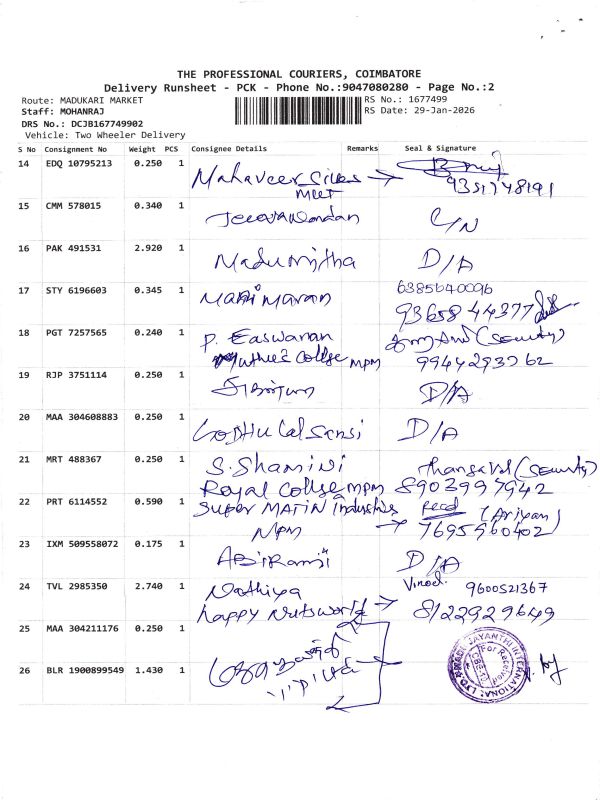 THE PROFESSIONAL COURIERS, COIMBATORE
Delivery Runsheet - PCK - Phone No.:9047080280 - Page No.:2
Route: MADUKARI MARKET
RS No.: 1677499
Staff: MOHANRAJ
RS Date: 29-Jan-2026
DRS No.: DCJB167749902
Vehicle: Two Wheeler Delivery
S No Consignment No Weight PCS Consignee Details Remarks Seal & Signature
14 EDQ 10795213 0.250 1 Mahaveer Silks
9351748191
15 CMM 578015 0.340 1 C/N
16 PAK 491531 2.920 1 Madumitha D/A
17 STY 6196603 0.345 1 Manimaran 6385640096
93658 44377
18 PGT 7257565 0.240 1 P. Easwaran (Security)
College mpm 9944293762
19 RJP 3751114 0.250 1 D/A
20 MAA 304608883 0.250 1 D/A
21 MRT 488367 0.250 1 S. Shamini Thangavel (Security)
Royal College mpm 8903997942
22 PRT 6114552 0.590 1 Super MATIN Industries (Ariyan)
Mpm 7695960402
23 IXM 509558072 0.175 1 Abirami D/A
24 TVL 2985350 2.740 1 Nathiya Vinod. 9600521367
happy Nutsworld 8122929649
25 MAA 304211176 0.250 1
26 BLR 1900899549 1.430 1
JAYANTHI INTERNATIONAL
For Received